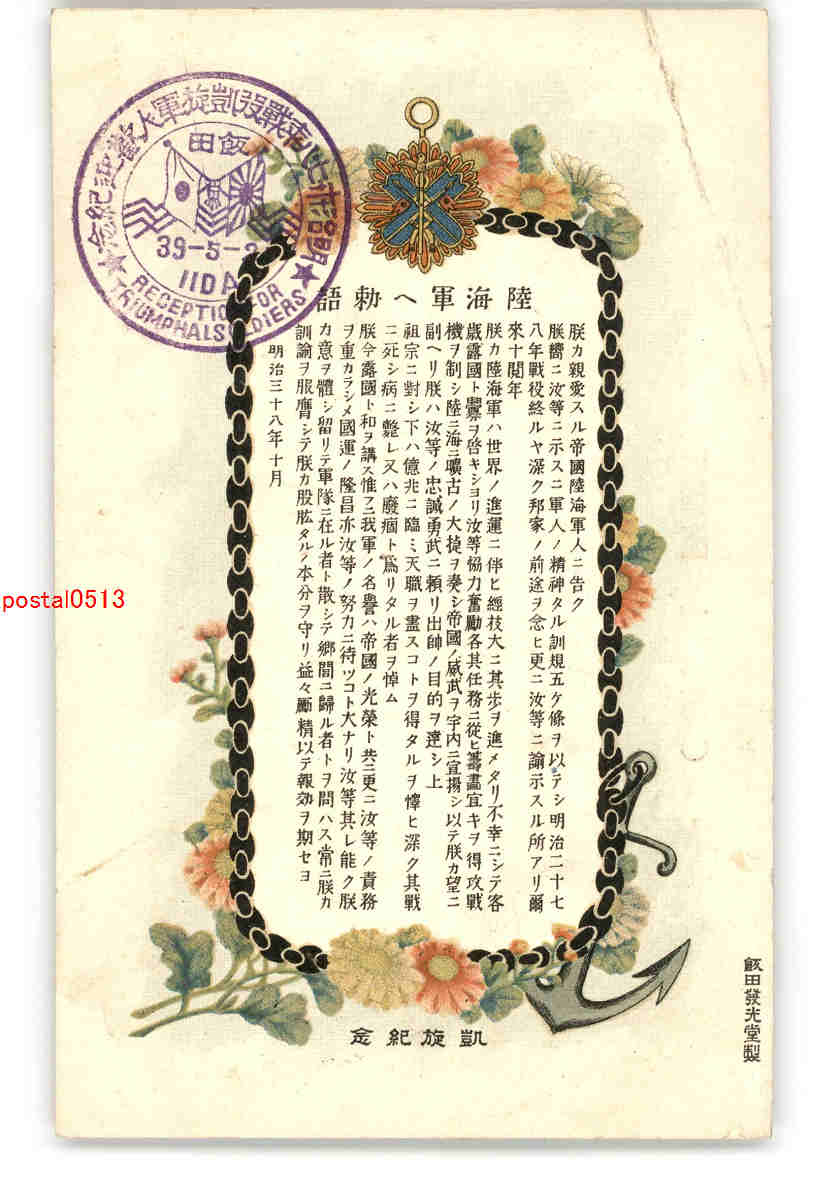 陸海軍ヘ勅語
朕カ親愛スル帝國陸海軍人ニ告ク
朕嚮ニ汝等ニ示スニ軍人ノ精神タル訓規五ケ條ヲ以テシ明治二十七
八年戰役終ルヤ深ク邦家ノ前途ヲ念ヒ更ニ汝等ニ諭示スル所アリ爾
來十閲年
朕カ陸海軍ハ世界ノ進運ニ伴ヒ經技大ニ其歩ヲ進メタリ不幸ニシテ客
歳露國ト釁ヲ啓キシヨリ汝等協力奮勵各其任務ニ從ヒ籌畫宜キヲ得攻戰
機ヲ制シ陸ニ海ニ曠古ノ大捷ヲ奏シ帝國ノ威武ヲ宇内ニ宣揚シ以テ朕カ望ニ
副ヘリ朕ハ汝等ノ忠誠勇武ニ頼リ出師ノ目的ヲ達シ上
祖宗ニ對シ下ハ億兆ニ臨ミ天職ヲ盡スコトヲ得タルヲ懌ヒ深ク其戰
ニ死シ病ニ斃レ又ハ廢痼ト爲リタル者ヲ悼ム
朕今露國ト和ヲ講ス惟フニ我軍ノ名譽ハ帝國ノ光榮ト共ニ更ニ汝等ノ責務
ヲ重カラシメ國運ノ隆昌亦汝等ノ努力ニ待ツコト大ナリ汝等其レ能ク朕
カ意ヲ體シ留リテ軍隊ニ在ル者ト散シテ郷閭ニ歸ル者トヲ問ハス常ニ朕カ
訓諭ヲ服膺シテ朕カ股肱タルノ本分ヲ守リ益々勵精以テ報効ヲ期セヨ
明治三十八年十月
凱旋紀念
飯田發光堂製
戰役凱旋軍人歡迎紀念
飯田
39-5-2
IIDA
RECEPTION FOR
TRIUMPHAL SOLDIERS
postal0513